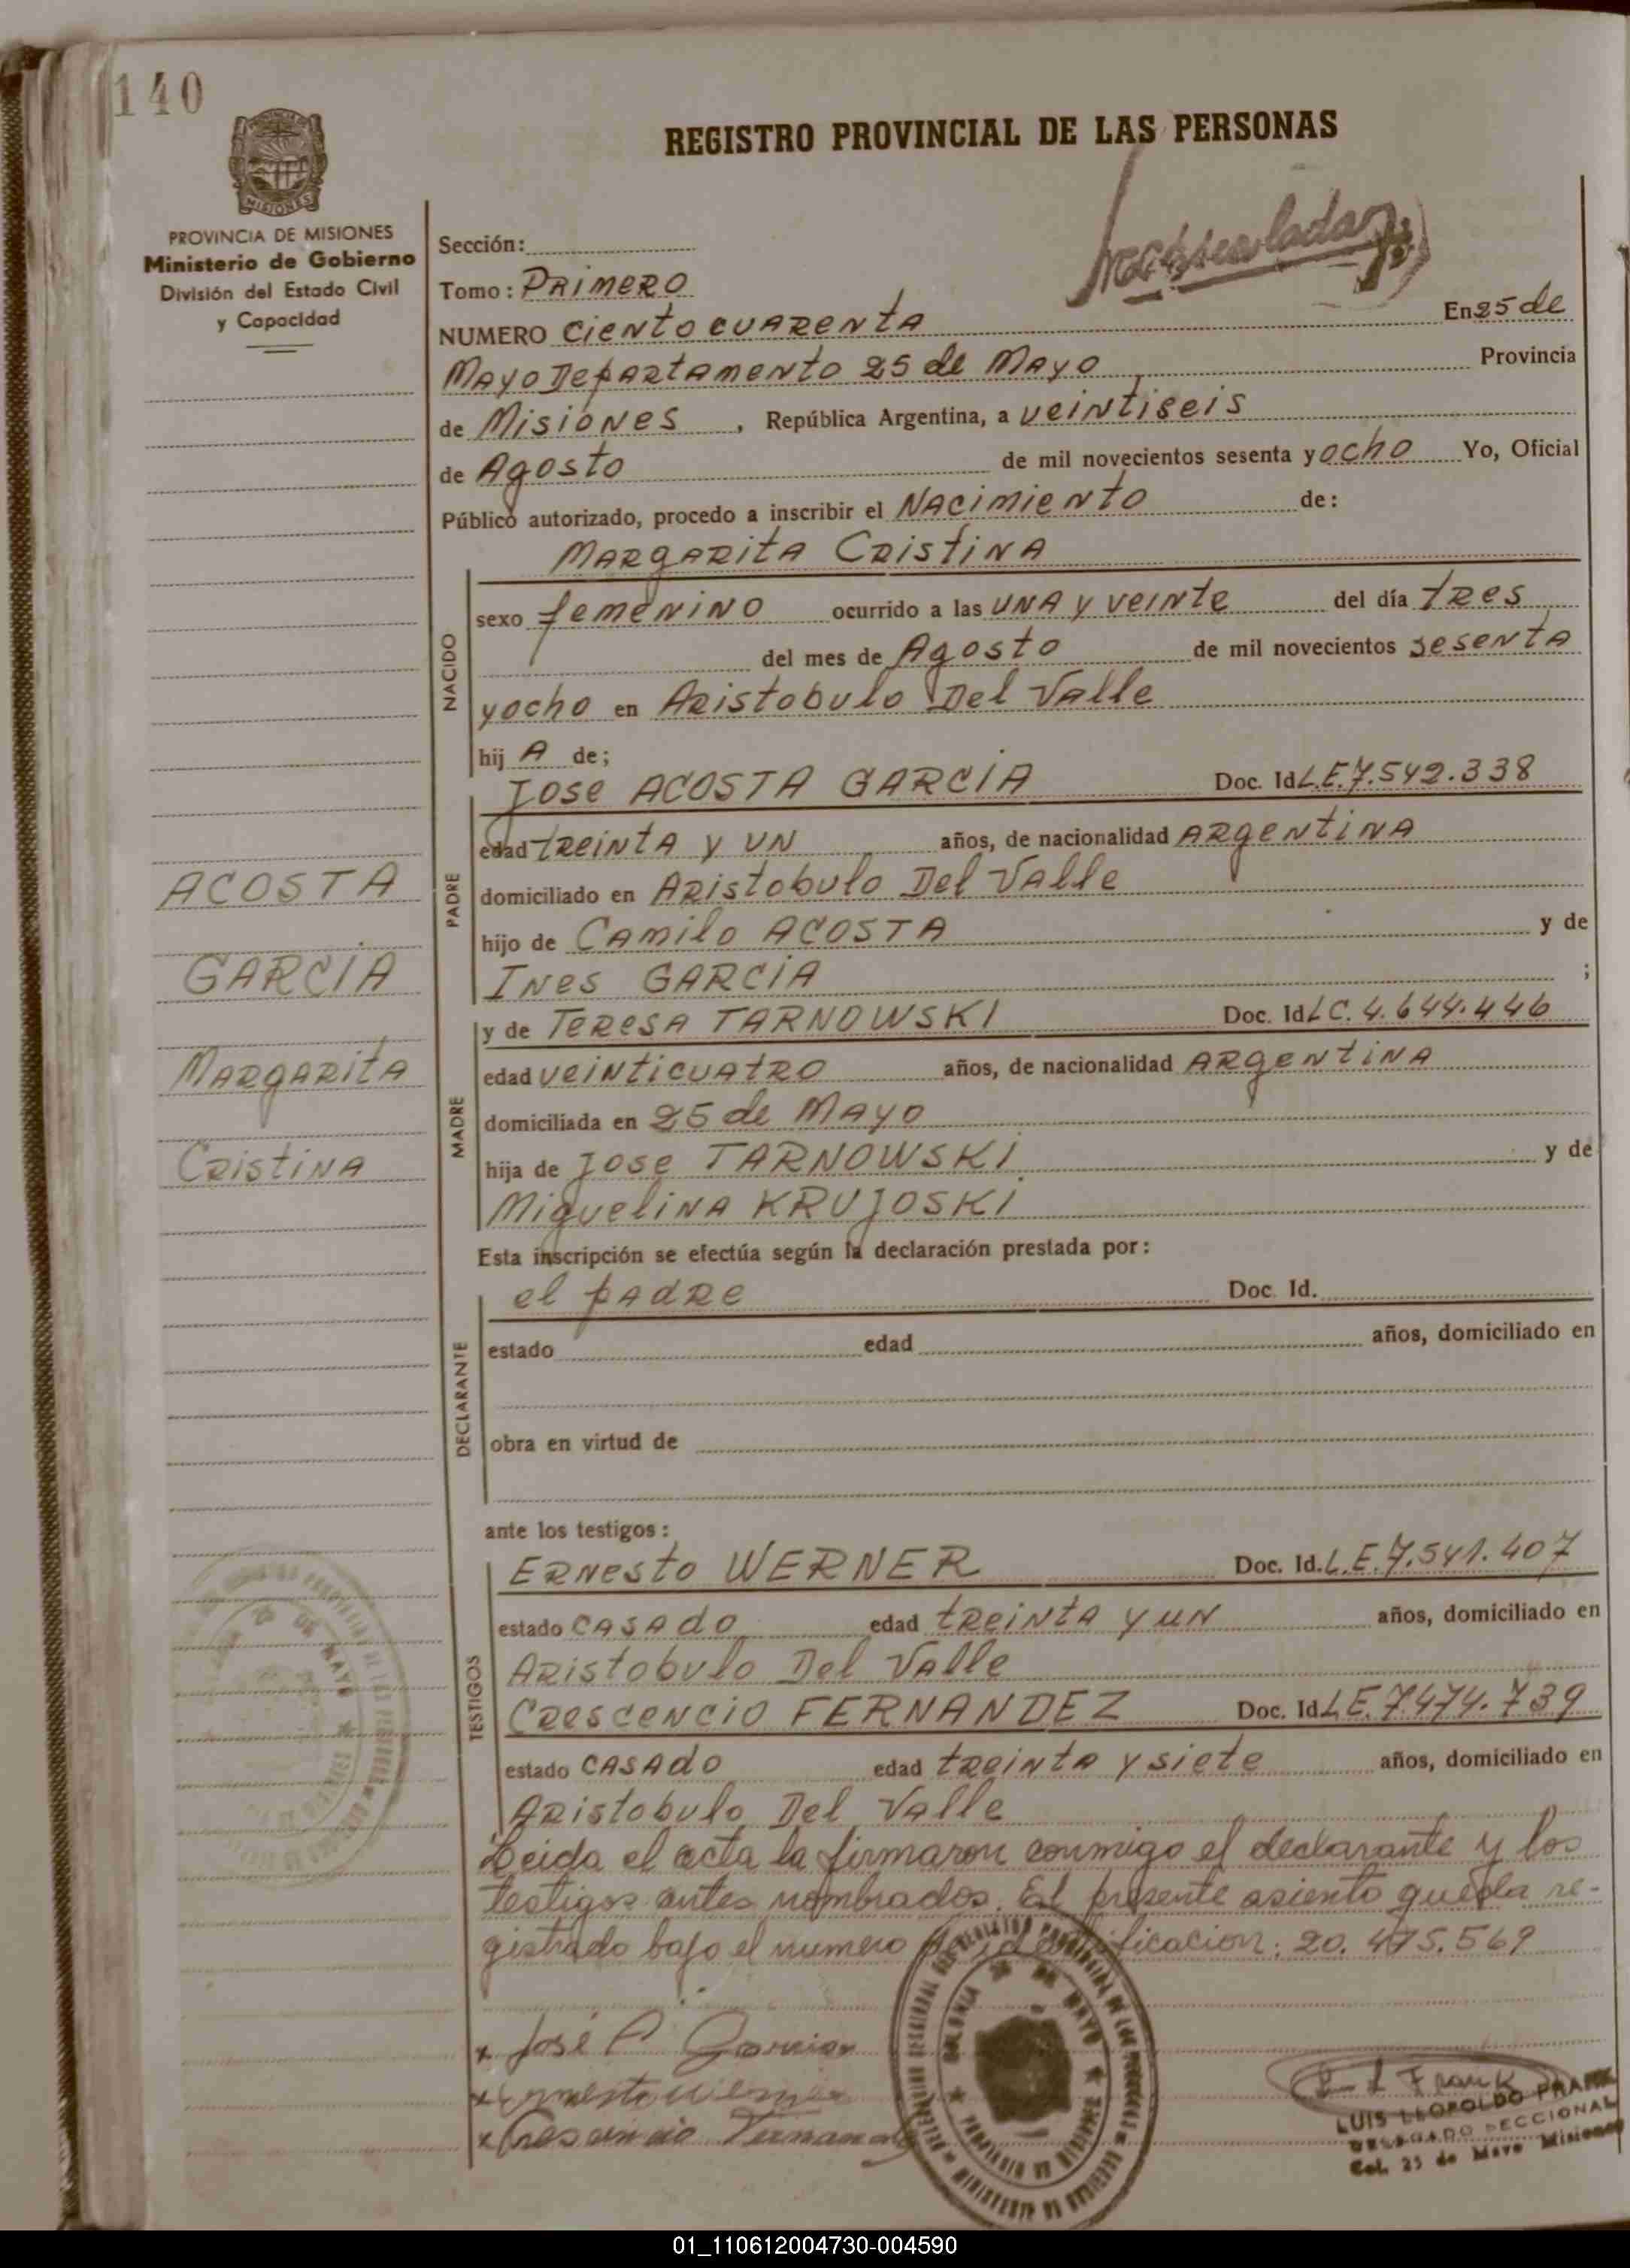 140
REGISTRO PROVINCIAL DE LAS PERSONAS
MISIONES
PROVINCIA DE MISIONES
Ministerio de Gobierno
División del Estado Civil
y Capacidad
Sección:
Tomo: Primero
NUMERO Ciento cuarenta En 25 de
Mayo Departamento 25 de Mayo Provincia
de Misiones, República Argentina, a veintiseis
de Agosto de mil novecientos sesenta y ocho Yo, Oficial
Público autorizado, procedo a inscribir el Nacimiento de:
Margarita Cristina
NACIDO
sexo femenino ocurrido a las una y veinte del día tres
del mes de Agosto de mil novecientos sesenta
y ocho en Aristobulo Del Valle
hij A de;
PADRE
Jose ACOSTA GARCIA Doc. Id L.E. 7.542.338
edad treinta y un años, de nacionalidad Argentina
domiciliado en Aristobulo Del Valle
hijo de Camilo ACOSTA y de
Ines GARCIA ;
MADRE
y de Teresa TARNOWSKI Doc. Id LC. 4.644.446
edad veinticuatro años, de nacionalidad Argentina
domiciliada en 25 de Mayo
hija de Jose TARNOWSKI y de
Miguelina KRUJOSKI
ACOSTA
GARCIA
Margarita
Cristina
Esta inscripción se efectúa según la declaración prestada por:
DECLARANTE
el padre Doc. Id.
estado edad años, domiciliado en
obra en virtud de
ante los testigos:
TESTIGOS
Ernesto WERNER Doc. Id. L.E. 7.541.407
estado casado edad treinta y un años, domiciliado en
Aristobulo Del Valle
Crescencio FERNANDEZ Doc. Id L.E. 7.474.739
estado casado edad treinta y siete años, domiciliado en
Aristobulo Del Valle
Leida el acta la firmaron conmigo el declarante y los
testigos antes nombrados. El presente asiento queda re-
gistrado bajo el numero de identificacion: 20.475.569
x José A Garcia
x Ernesto Werner
x Crescencio Fernandez
L L Frank
LUIS LEOPOLDO FRANK
DELEGADO SECCIONAL
Col. 25 de Mayo Misiones
01_110612004730-004590